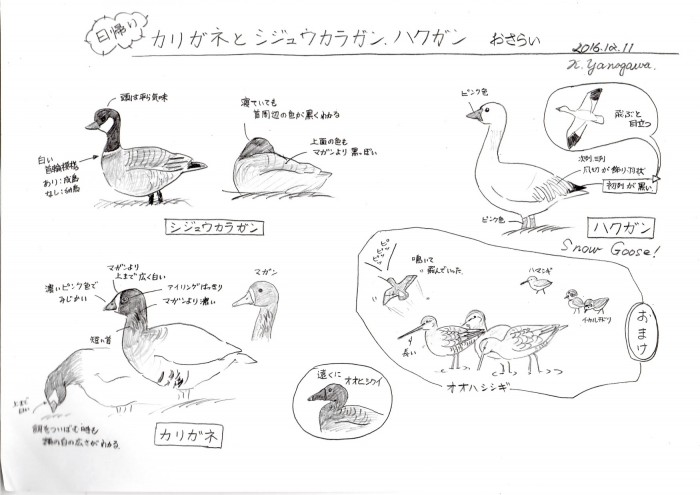 日帰り
カリガネとシジュウカラガン.ハクガン おさらい
2016.12.11
K.Yanogawa.
頭は平ら気味
白い
首輪模様。
あり:成鳥
なし:幼鳥
寝ていても
首周辺の色が黒くわかる
上面の色も
マガンより黒っぽい
シジュウカラガン
ピンク色
飛ぶと
目立つ
次列三列
爪切が飾り羽状
初列が黒い
ピンク色
ハクガン
Snow Goose!
マガンより
上まで広く白い
濃いピンク色で
みじかい
アイリングはっきり
マガンより濃い
マガン
短い首
上まで
白い
餌をついばむ時も
額の白の広さがわかる
カリガネ
遠くに
オオヒシクイ
ピッ
ピッ
ピッ
鳴いて
飛んでいた。
ハマシギ
イカルチドリ
長い
オオハシシギ
おまけ